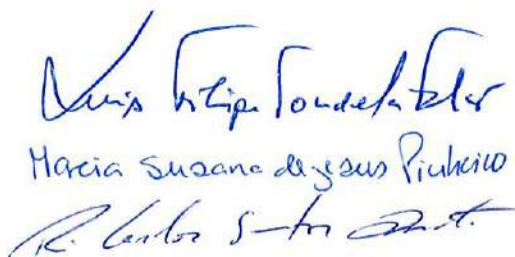 Luis Filipe Tondela Falar
Marcia Susana de Jesus Pinheiro
R. Carlos Santos